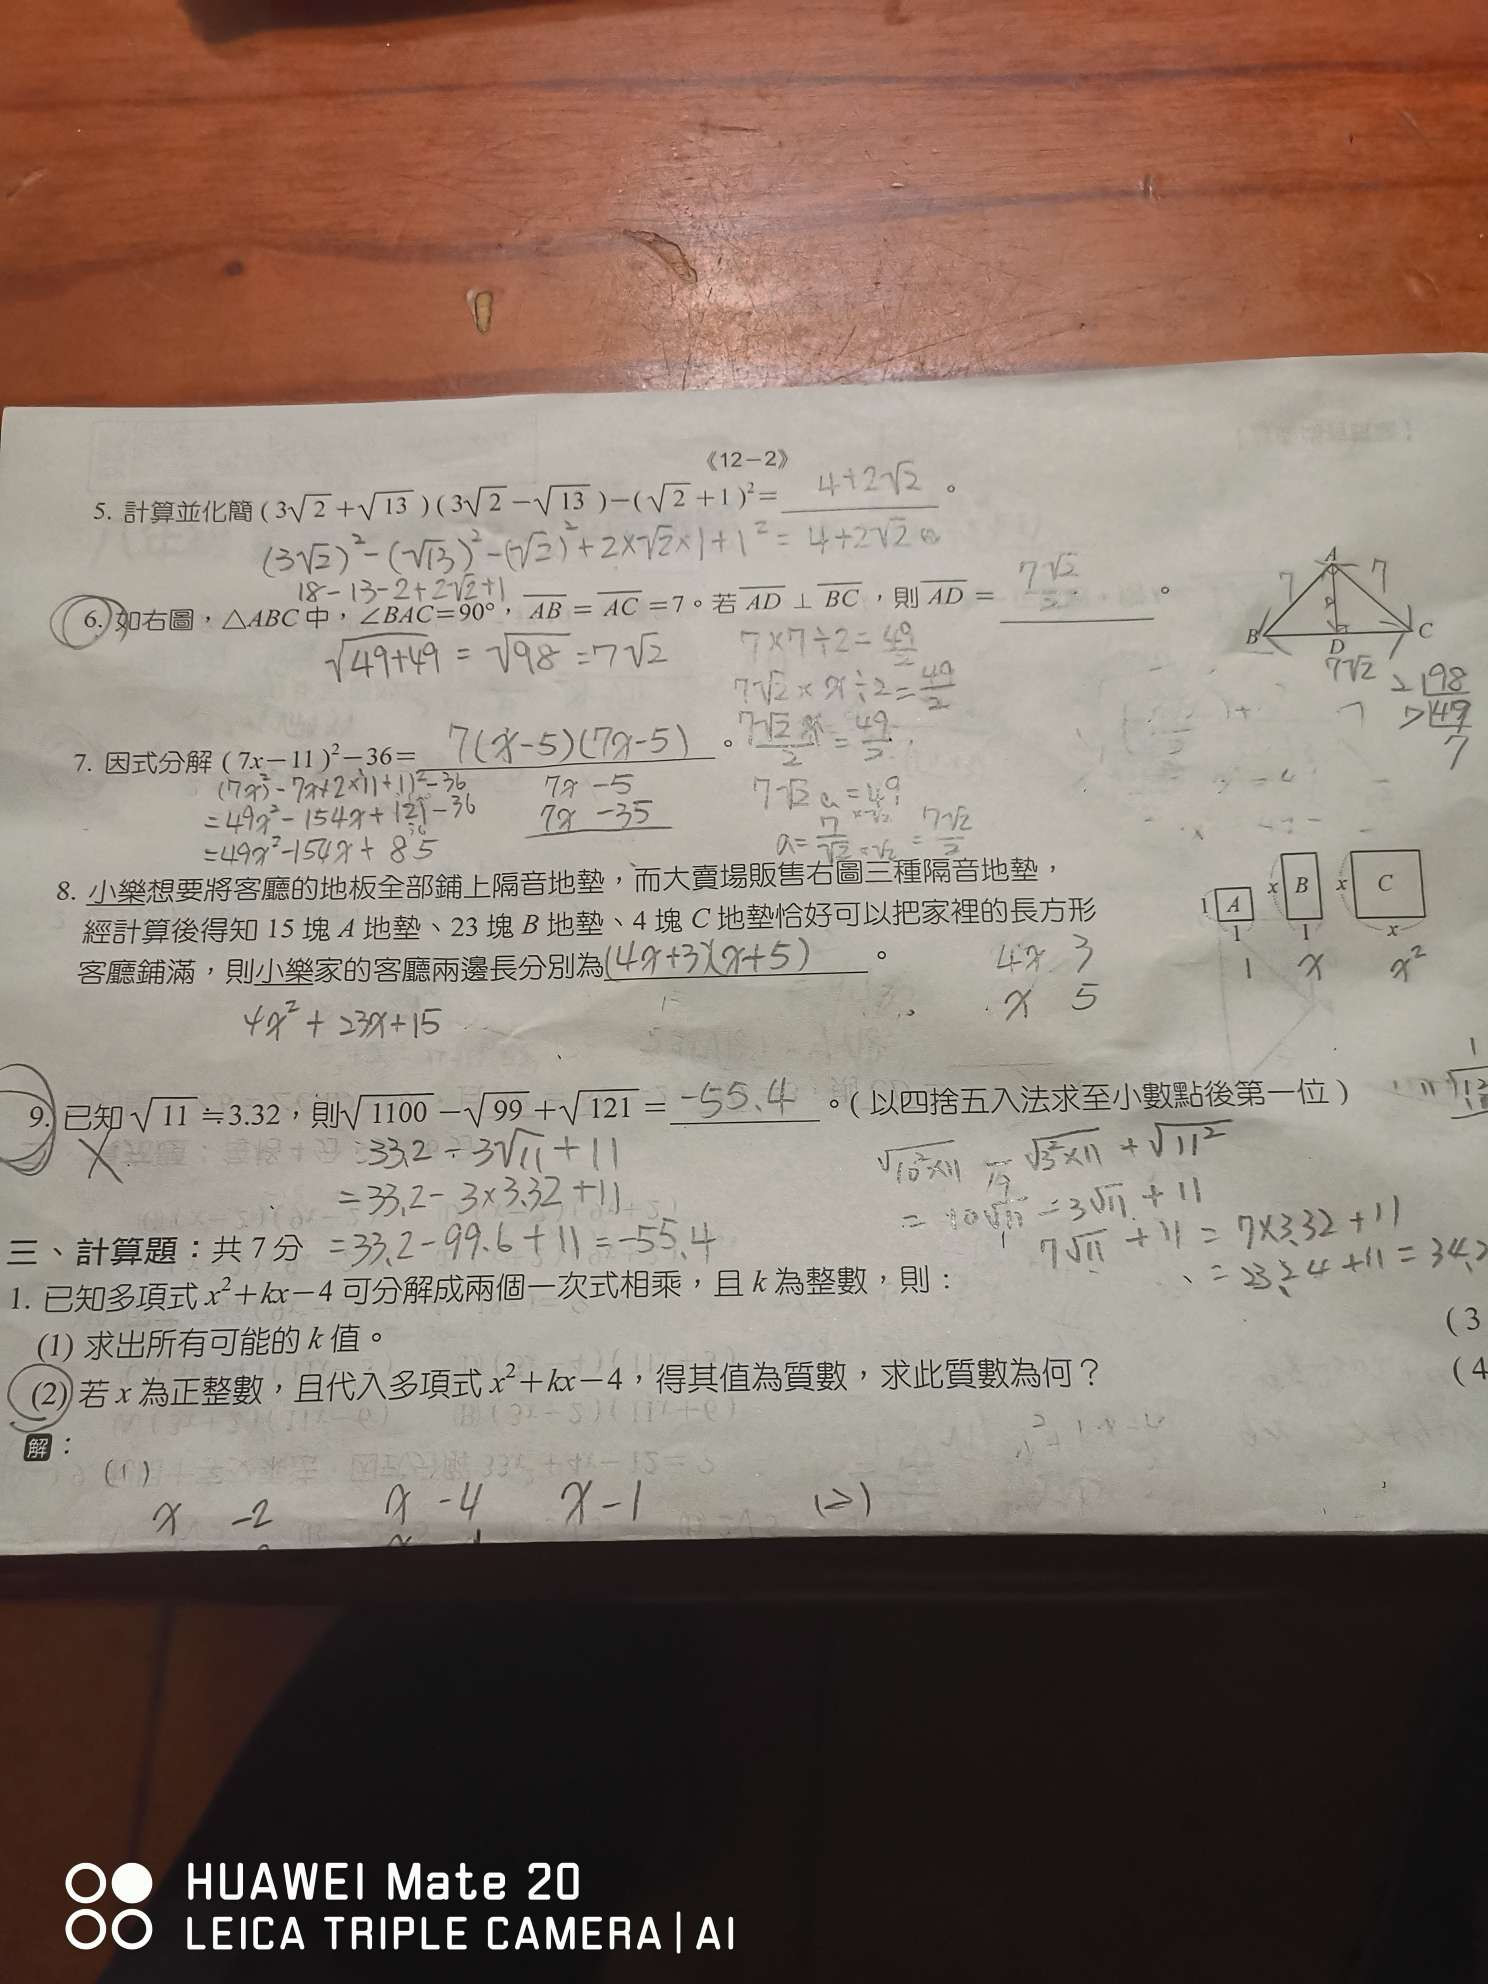 《12－2》
5. 計算並化簡 (3√2＋√13)(3√2－√13)－(√2＋1)²＝ 4+2√2 。
(3√2)²-(√13)²-(√2)²+2×√2×1+1²= 4+2√2
18-13-2+2√2+1
6. 如右圖，△ABC 中，∠BAC=90°，AB＝AC＝7。若 AD ⊥ BC，則 AD＝ 7√2/2 。
√49+49 = √98 =7√2
7×7÷2= 49/2
7√2 × x ÷2= 49/2
7√2 x/2 = 49/2
7√2 a = 49
a= 7/√2 ×√2/×√2 = 7√2/2
A
7 7
B D C
7√2
2 98
7 49
7
7. 因式分解 (7x－11)²－36＝ 7(x-5)(7x-5) 。
(7x)²- 7x×2×11+11²-36
=49x²-154x+121-36
=49x²-154x+85
7x -5
7x -35
8. 小樂想要將客廳的地板全部鋪上隔音地墊，而大賣場販售右圖三種隔音地墊，
經計算後得知 15 塊 A 地墊、23 塊 B 地墊、4 塊 C 地墊恰好可以把家裡的長方形
客廳鋪滿，則小樂家的客廳兩邊長分別為(4x+3)(x+5) 。
4x²+23x+15
4x 3
x 5
1 A x B x C
1 1 x
1 x x²
9. 已知 √11 ≒3.32，則√1100－√99＋√121＝ -55.4 。( 以四捨五入法求至小數點後第一位 )
=33.2-3√11+11
=33.2-3×3.32+11
=33.2-99.6+11=-55.4
√10²×11 - √3²×11 + √11²
= 10√11 - 3√11 + 11
7√11 + 11 = 7×3.32+11
= 23.24+11=34.2
三、計算題：共 7 分
1. 已知多項式 x²＋kx－4 可分解成兩個一次式相乘，且 k 為整數，則：
(1) 求出所有可能的 k 值。
(3
(2) 若 x 為正整數，且代入多項式 x²＋kx－4，得其值為質數，求此質數為何？
(4
解：
(1)
x -2 x -4 x -1 (2)
HUAWEI Mate 20
LEICA TRIPLE CAMERA | AI